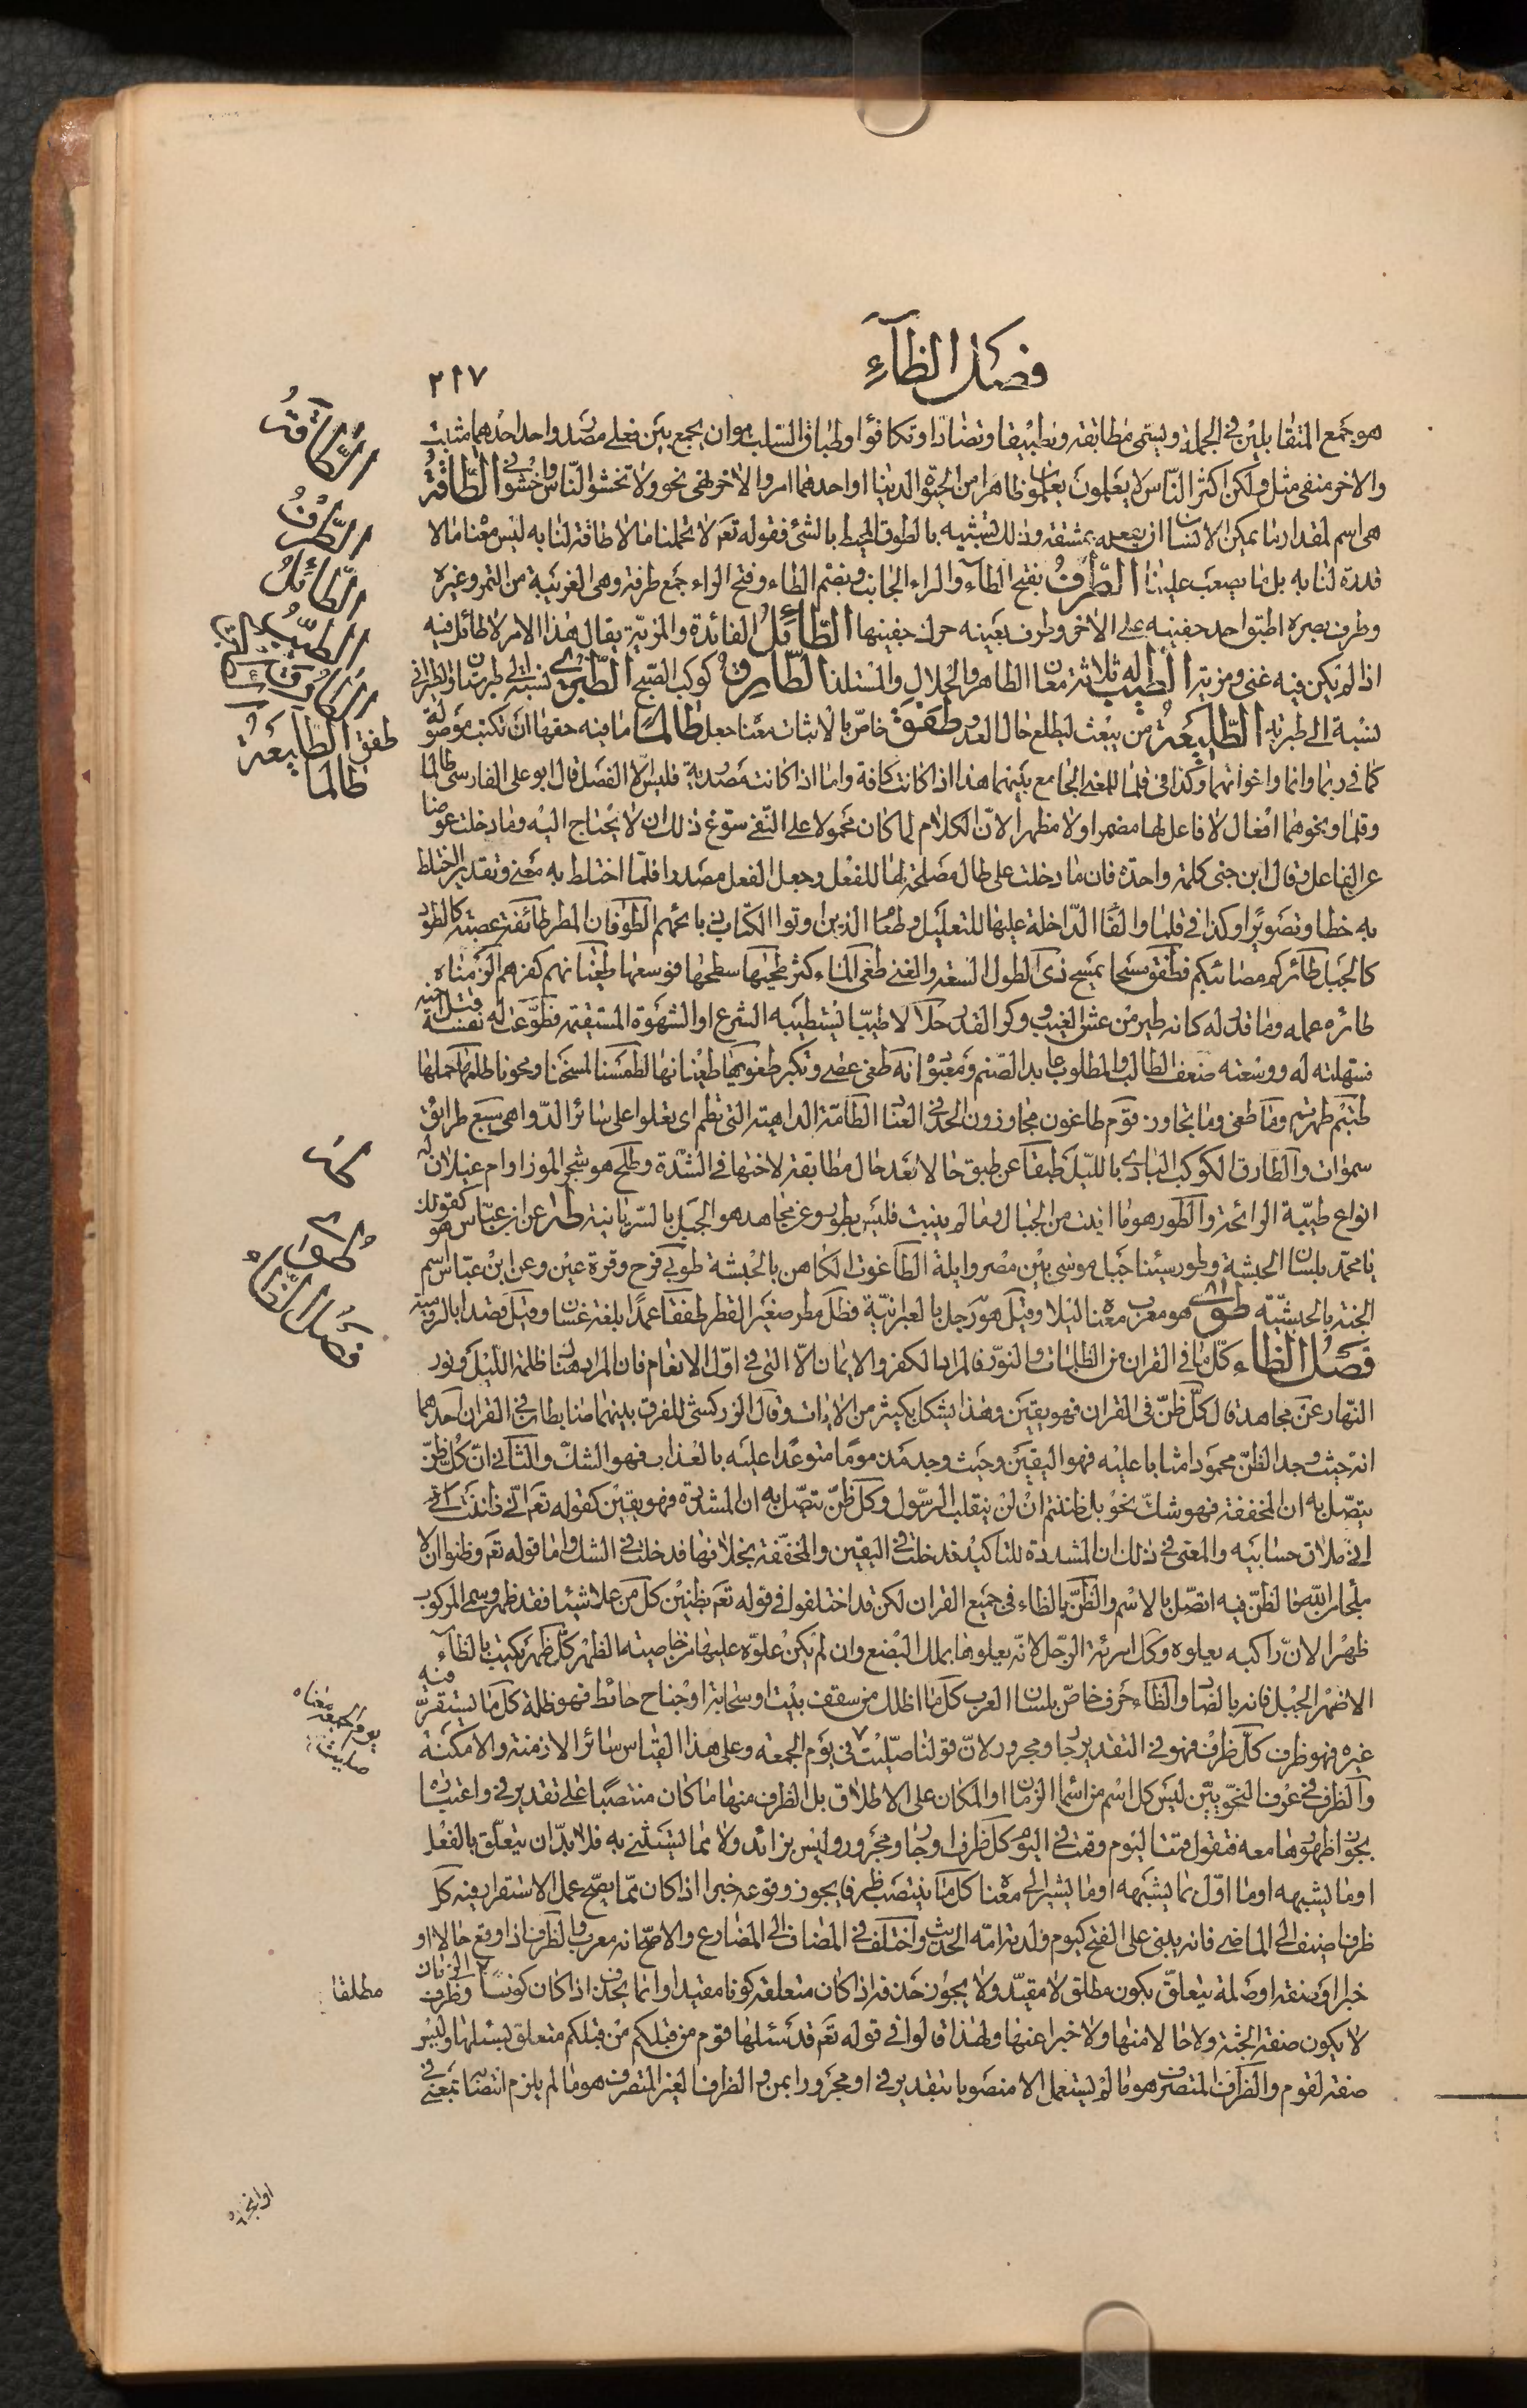 فصل الظآء
٢١٧
هو جمع المتقابلين في الجملة ويسمى مطابقة وتطبيقا وتضادا وتكافؤا وطباق السلب هو ان يجمع بين فعلي مصدر واحد احدهما مثبت
والاخر منفى مثل ولكن اكثر الناس لا يعلمون يعلمون ظاهرا من الحيوة الدنيا او احدهما امر والاخر نهى نحو ولا تخشوا الناس واخشون الطَّاقَةُ
هى اسم لمقدار ما يمكن لانسان ان يفعله بمشقة وذلك تشبيه بالطوق المحيط بالشئ فقوله تع لا تحملنا ما لا طاقة لنا به ليس معناه ما لا
قدرة لنا به بل ما يصعب علينا الطَّرْفُ بفتح الطآء والراء الجانب وبضم الطاء وفتح الراء جمع طرفة وهى الغريبة من التمر وغيره
وطرف بصره اطبق احد جفنيه على الاخر وطرف بعينه حرك جفنيها الطَّائِلُ الفائدة والمزية يقال هذا الامر لا طائل فيه
اذا لم يكن فيه غنى ومزية الطيب له ثلاثة معان الطاهر والحلال والمستلذ الطَّارِقُ كوكب الصبح الطَّبَرِيُّ نسبة الى طبرستان والطبراني
نسبة الى طبرية الطَّلِيعَةُ من يبعث ليطلع حال العدو طَفِقَ خاص بالاثبات معناه جعل طَالَمَا ما فيه حقها ان تكتب موصولة
كما في ربما وانما واخواتهما وكذا في قلما للمعنى الجامع بينهما هذا اذا كانت كافة واما اذا كانت مصدرية فليس الا الفصل قال ابو على الفارسى طالما
وقلما ونحوهما افعال لا فاعل لها مضمرا ولا مظهرا لان الكلام لما كان محمولا على النفى سوغ ذلك ان لا يحتاج اليه وما دخلت عوضا
عن الفاعل وقال ابن جنى كلمة واحدة فان ما دخلت على طال مصلحة لها للفعل وجعل الفعل مصدرا فلما اختلط به معنى وتقديرا اختلط
به خطا وتصويرا وكذا في قلما والفآ الداخلة عليها للتعليل وطعام الذين اوتوا الكتاب ذبائحهم الطوفان المطر طائفة عصبة كالطود
كالجبل طائركم مصائبكم فطفق مسحا يمسح ذى الطول السعة والغنى طغى الماء كثر طحيها سطحها فوسعها طغيانهم كفرهم الزمناه
طائره عمله وما قدر له كانه طير من عش الغيب ووكر القدر حلالا طيبا يستطيبه الشرع او الشهوة المستقيمة فطوعت له نفسه قتل اخيه
فسهلته له ووسعته ضعف الطالب والمطلوب عابد الصنم ومعبوده انه طغى عصى وتكبر بطغويها طغيانها لطمسنا لمسخنا ومحونا طلعها حملها
طبتم طهرتم وما طغى وما تجاوز قوم طاغون مجاوزون الحد في العناد الطامة الداهية التى تطم اى تعلوا على سائر الدواهى سبع طرائق
سموات والطارق الكوكب البادى بالليل طبقا عن طبق حالا بعد حال مطابقة لاختها في الشدة وطلح هو شجر الموز او ام غيلان له
انواع طيبة الرائحة والطور هو ما انبت من الجبال وما لم ينبت فليس بطور وعن مجاهد هو الجبل بالسريانية طه عن ابن عباس هو كقولك
يا محمد بلسان الحبشة وطور سيناء جبل موسى بين مصر وايلة الطاغوت الكاهن بالحبشة طوبى فرح وقرة عين وعن ابن عباس اسم
الجنة بالحبشية طُوًى هو معرب معناه ليلا وقيل هو رجل بالعبرانية فطل مطر صغير القطر طفقا عمدا بلغة غسان وقيل قصدا بالرومية
فَصْلُ الظَّاءِ كل ما في القران من الظلمات والنور فالمراد الكفر والايمان الا التى في اول الانعام فان المراد هنا ظلمة الليل ونور
النهار عن مجاهد قال كل ظن في القران فهو يقين وهذا يشكل بكثير من الايات وقال الزركشى للفرق بينهما ضابطان في القران احدهما
انه حيث وجد الظن محمودا مثابا عليه فهو اليقين وحيث وجد مذموما متوعدا عليه بالعذاب فهو الشك والثاني ان كل ظن
يتصل به ان المخففة فهو شك نحو بل ظننتم ان لن ينقلب الرسول وكل ظن يتصل به ان المشددة فهو يقين كقوله تع انى ظننت
انى ملاق حسابيه والمعنى في ذلك ان المشددة للتاكيد فدخلت في اليقين والمخففة بخلافها فدخلت في الشك واما قوله تع وظنوا ان لا
ملجأ من الله فالظن فيه اتصل بالاسم والظن بالظاء فى جميع القران لكن قد اختلفوا في قوله تع بظنين كل من علا شيئا فقد ظهر وسمى المركوب
ظهرا لان راكبه يعلوه وكل امرئة الرجل لانه يعلوها بملك البضع وان لم يكن علوه عليها من خاصية الظهر كل ظهر يكتب بالظآء
الا ضهر الجبل فانه بالضاد والظآء حرف خاص بلسان العرب كل ما اظلك من سقف بيت او سحابة او جناح حائط فهو ظلة كل ما يستقر فيه
غيره فهو ظرف كل ظرف فهو في التقدير جار ومجرور لان قولنا صليت في يوم الجمعة وعلى هذا القياس سائر الازمنة والامكنة
والظرف في عرف النحويين ليس كل اسم من اسماء الزمان او المكان على الاطلاق بل الظرف منها ما كان منتصبا على تقدير في واعتباره
بجواز ظهورها معه فتقول قمت اليوم وقمت في اليوم كل ظرف او جار ومجرور وليس بزائد ولا مما يستثنى به فلا بد ان يتعلق بالفعل
او ما يشبهه او ما اول بما يشبهه او ما يشير الى معناه كل ما ينتصب ظرفا يجوز وقوعه خبرا اذا كان مما يصح عمل الاستقرار فيه كل
ظرف اضيف الى الماضى فانه يبنى على الفتح كيوم ولدته امه الحديث واختلف في المضاف الى المضارع والاصح انه معرب والظرف اذا وقع حالا او
خبرا او صفة او صلة يتعلق بكون مطلق لا مقيد ولا يجوز حذفه اذا كان متعلقه كونا مقيدا وانما يحذف اذا كان كونا وظرف الزمان
لا يكون صفة الجثة ولا حالا منها ولا خبرا عنها ولهذا قالوا في قوله تع قد سئلها قوم من قبلكم من قبلكم متعلق بسئلها وليس
صفة لقوم والظرف المتصرف هو ما لم يستعمل الا منصوبا بتقدير في او مجرورا بمن والظرف الغير المتصرف هو ما لم يلزم انتصابه بمعنى في
الطَّاقَةُ
الطَّرْفُ
الطَّائِلُ
الطيب
الطارق
طفق الطليعة
طالما
طه
طوى
فصل الظاء
يوم الجمعة معناه
صليت
مطلقا